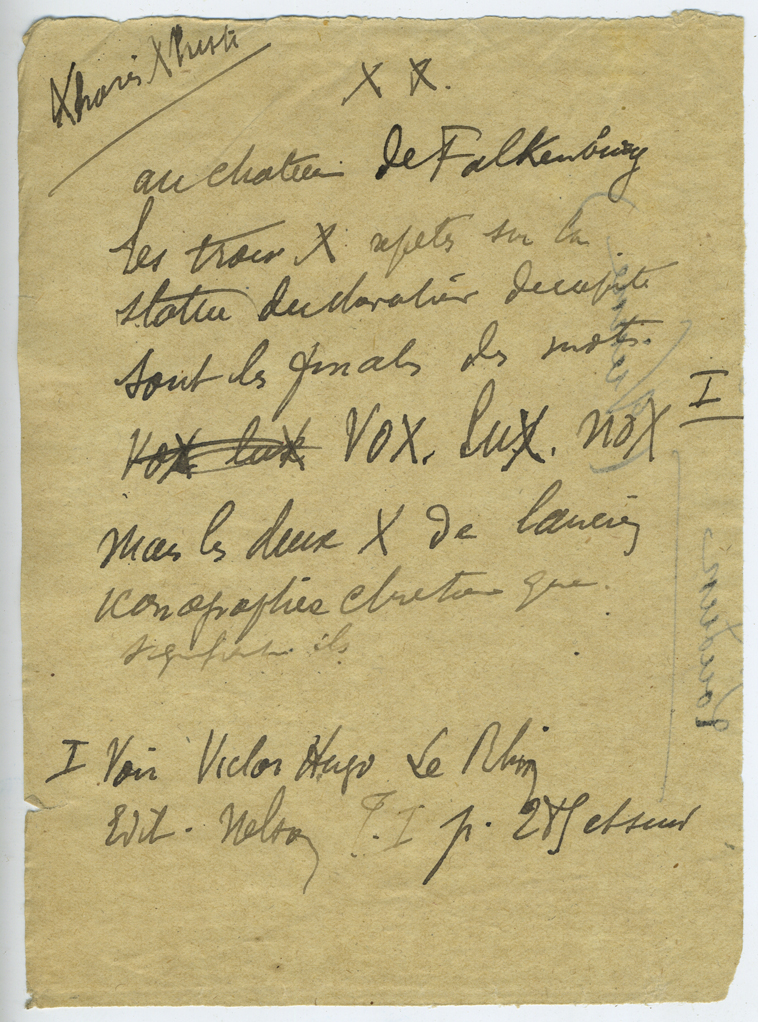 X X.
au chateau de Falkenburg
les trois X repetes sur la
statue du chevalier decapité
sont les finales des mots.
vox lux VOX. LUX. NOX I
Mais les deux X de l'ancien
iconographie chretienne que
signifient ils
I Voir Victor Hugo Le Rhin
Edit. Nelson T. I p. 285 et suiv